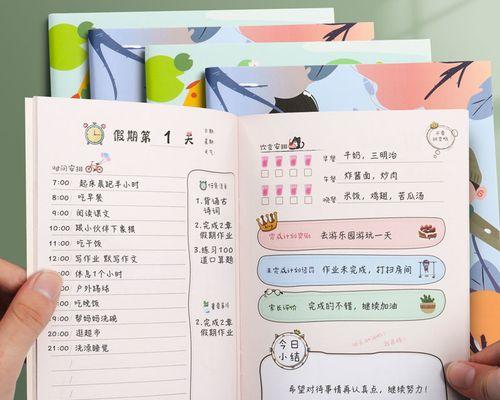 假期第 1 天
日期
星期
天气
时间安排
7:00 起床晨跑半小时
8:00 吃早餐
9:00 阅读课文
10:00 跟小伙伴下象棋
11:00 吃午饭
12:00 写作业 默写作文
休息1个小时
户外踢球
吃晚饭
19:00 帮妈妈洗碗
20:00 逛超市
21:00 洗漱睡觉
任务清单
1.背诵古
诗词
2.完成2章
假期作业
3.练习100
道口算题
2.完成2章
假期作业
饮食安排
早餐 牛奶，三明治
午餐 炸酱面，炒肉
晚餐 米饭，鸡翅，苦瓜汤
完成计划奖励 去游乐园游玩一天
未完成计划惩罚 作业未完成，打扫房间
家长评价 完成的不错，继续加油
今日
小结
希望对待事情再认真点，继续努力！